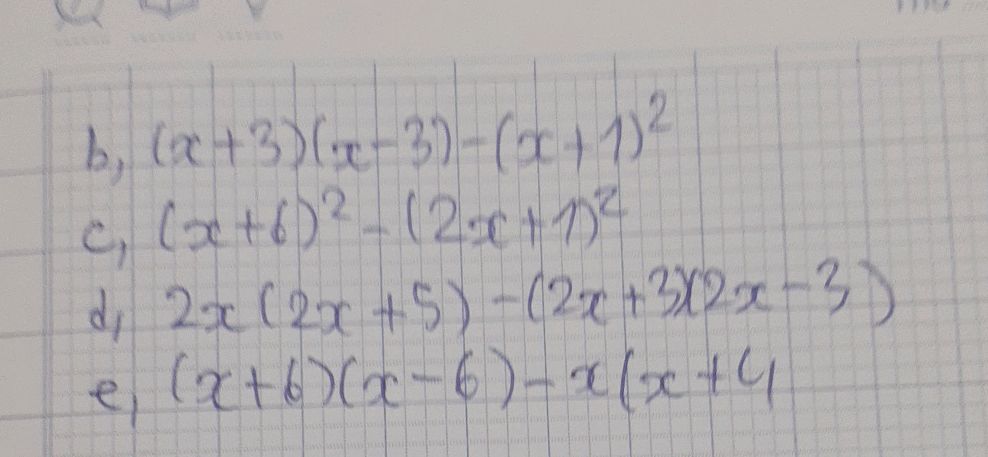 b, (x+3)(x-3)-(x+1)²
c, (x+6)²-(2x+1)²
d, 2x(2x+5)-(2x+3)(2x-3)
e, (x+6)(x-6)-x(x+4